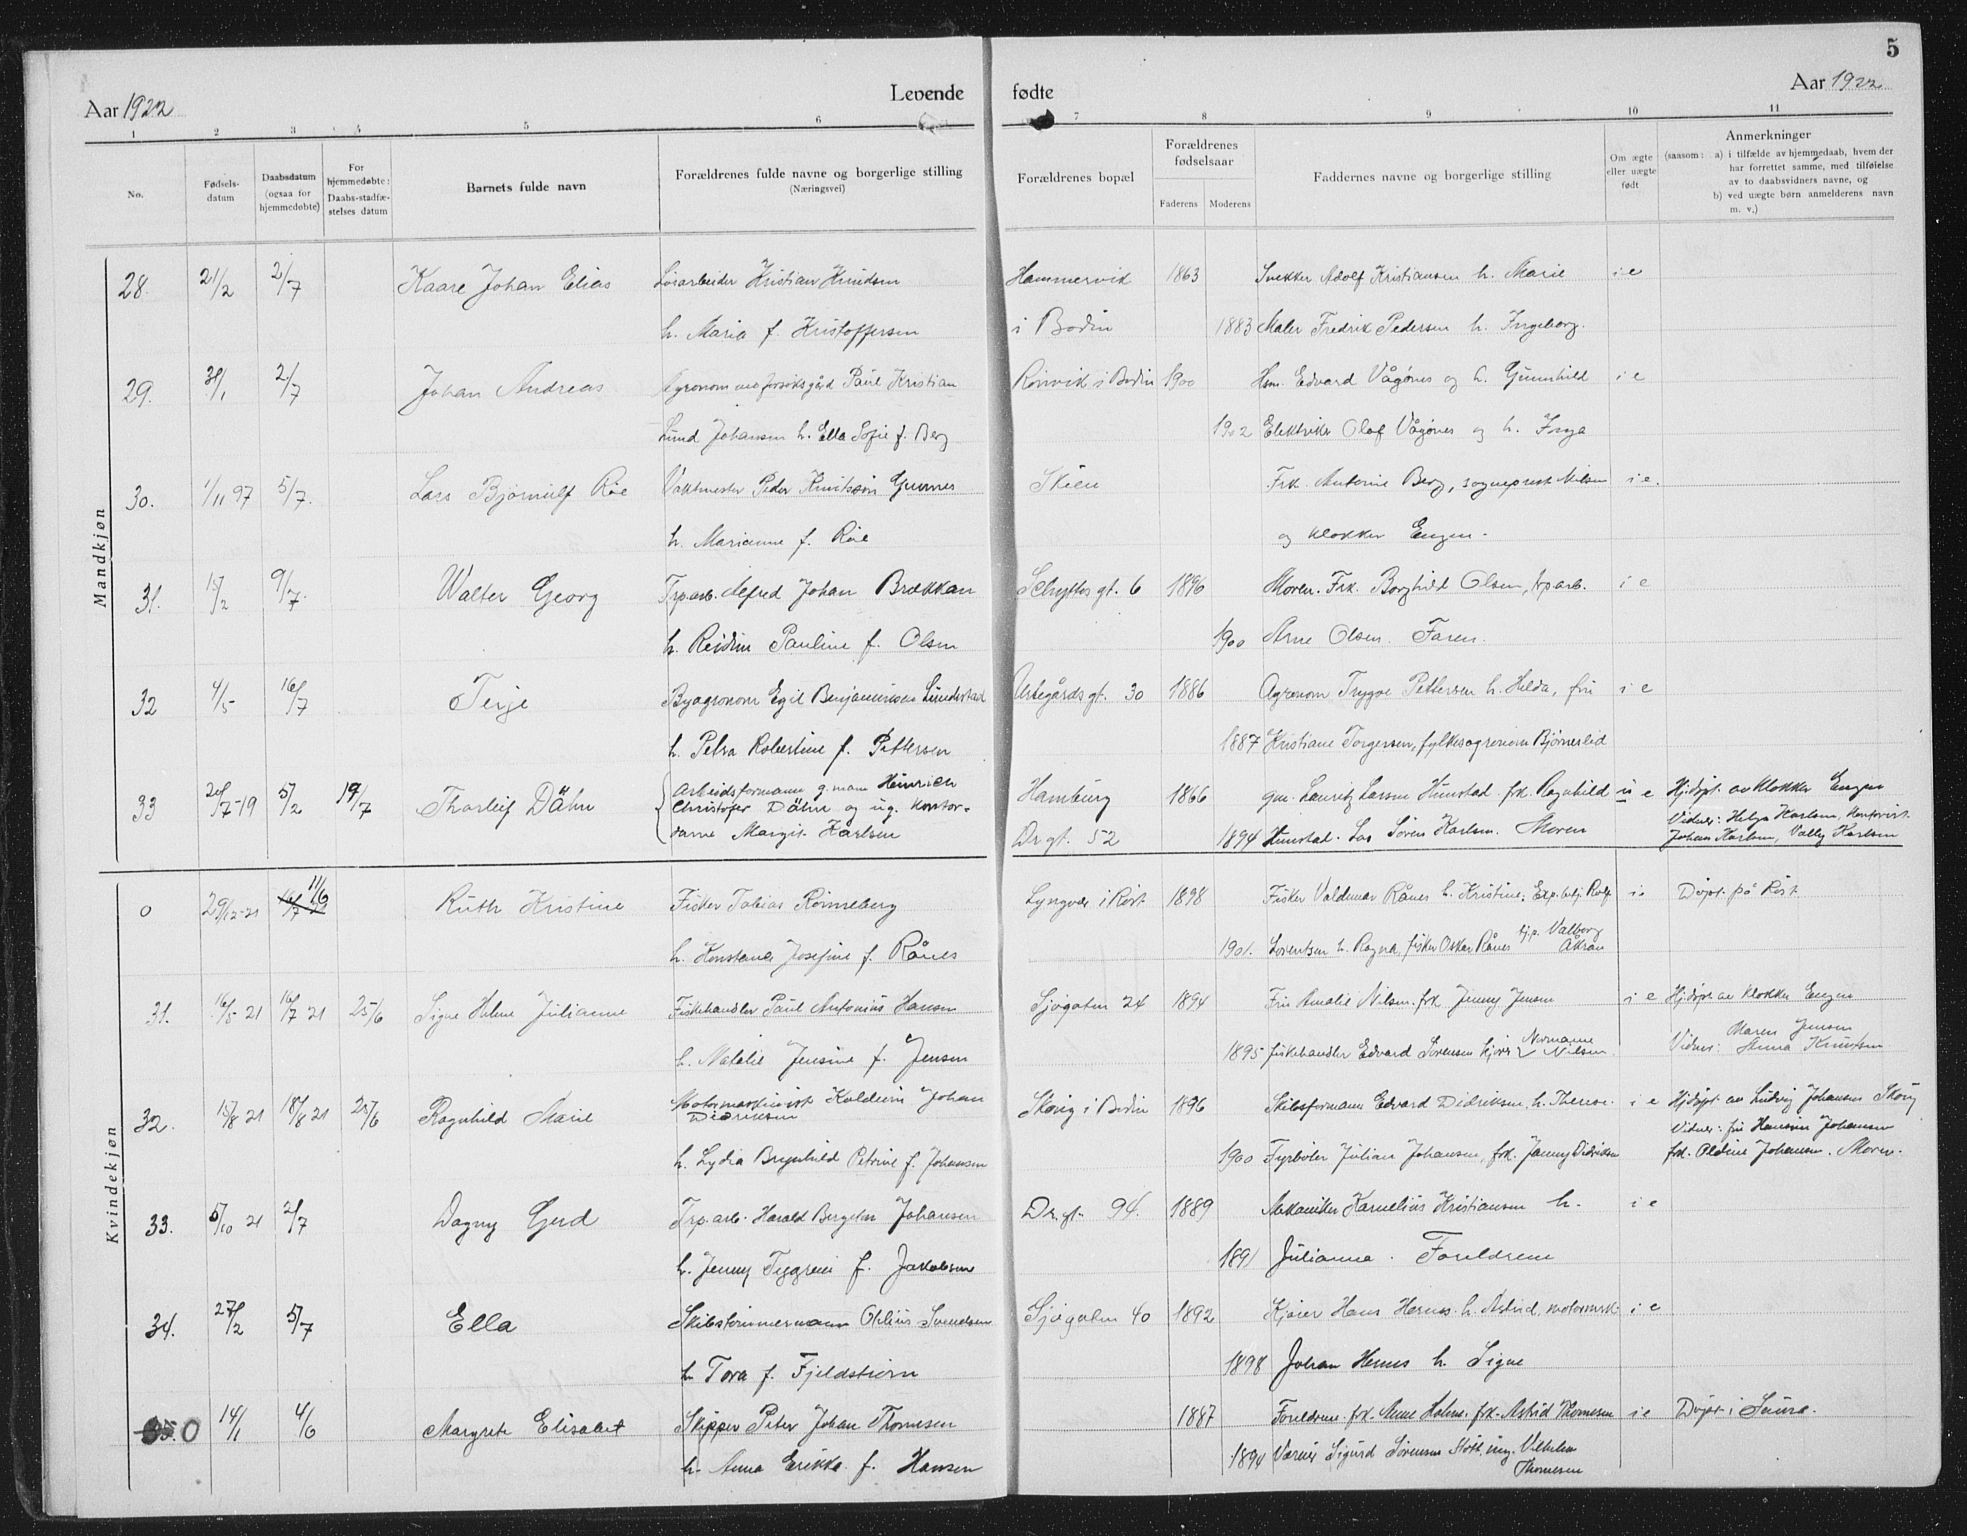 5
Aar 1922 Levende fødte Aar 1922
1 2 3 4 5 6 7 8 9 10 11
No.
Fødsels-
datum
Daabsdatum
(ogsaa for
hjemmedøbte)
For
hjemmedøbte:
Daabs-stadfæ-
stelses datum
Barnets fulde navn
Forældrenes fulde navne og borgerlige stilling
(Næringsvei)
Forældrenes bopæl
Forældrenes
fødselsaar
Faderens Moderens
Faddernes navne og borgerlige stilling
Om ægte
eller uægte
født
Anmerkninger
(saasom: a) i tilfælde av hjemmedaab, hvem der
har forrettet samme, med tilføielse
av to daabsvidners navne, og
b) ved uægte børn anmelderens navn
m. v.)
Mandkjøn
28. 21/2 2/7 Kaare Johan Elias Løsarbeider Kristian Knudsen Hammervik 1863 Snekker Adolf Kristiansen h. Marie i e
h. Maria f. Kristoffersen i Bodin 1883 Maler Fredrik Pedersen h. Ingeborg.
29. 31/1 2/7 Johan Andreas Agronom ved forsøksgård Paul Kristian Rønvik i Bodin 1900 Hsm. Edvard Vågønes og h. Gunnhild i e
Lund Johansen h. Ella Sofie f. Berg 1902 Elektriker Olaf Vågønes og h. Inga
30. 1/11 97 5/7. Lars Bjørnulf Røe Vaktmester Peder Gumnes Skien Frk. Antonie Berg, sogneprest Nilsen i e.
h. Marianne f. Røe og klokker Engen.
31. 15/2 9/7. Walter Georg Trp.arb. Alfred Johan Brækkan Schyttes gt. 6 1896 Moren. Frk. Borghild Olsen, trp.arb. i e
h. Reidun Pauline f. Olsen 1900 Arne Olsen. Faren.
32 4/5 16/7 Terje Byagronom Egil Benjaminsen Lundestad gt. 30 1886 Agronom Trygve Pettersen h. Helda, fru i e
h. Petra Robertine f. Pettersen 1887 Kristiane Torgersen, fylkesagronom Bjørnerlid
33 20/7-19 5/2 19/7 Thorleif Dähn Arbeidsformann g. mann Heinrich Hamburg 1866 gm. Lauritz Larsen Hunstad. frk. Ragnhild u e Hjdøpt. av klokker Engen
Christofer Dähn og ug. kontor-
dame Margit Karlsen Dr gt. 52 1894 Hunstad. Søren Karlsen. Moren
Vidner: Helga Karlsen, kontorist.
Johan Karlsen, Valby Karlsen
Kvindekjøn
0 29/12-21 11/6 Ruth Kristine Fisker Tobias Rønneberg Lyngvær i Røst 1898 Fisker Valdemar Rånes h. Kristine. Exp.betj. Rolf i e Døpt på Røst
h. Konstance Josefine f. Rånes 1901. Lorentsen h. Ragna, fisker Oskar Rånes tjp. Valborg
Åkran
31. 16/5 21 16/7 21 25/6 Signe Helene Julianne Fiskehandler Paul Antonius Hansen Sjøgaten 24 1894 Fru Amalie Nilsen. frk. Jenny Jensen i e Hjdøpt av klokker Engen
h. Natalie Jensine f. Jensen 1895 fiskehandler Edvard Sørensen Normanne
Nilsen
Vidner: Maren Jensen
Anna Knutsen
32. 15/8 21 18/8 21 25/6 Ragnhild Marie Motormaskinist Johan Skeug i Bodin 1896 Skibsformann Edvard Didriksen, h. Therese. i e Hjdøpt av Ludvig Johansen Skeug
Didriksen
Vidner: fru Johansen
h. Lydia Brynhild Petrine f. Johansen 1900 Fyrbøter Julian Johansen, frk. Jenny Didriksen frk. Oldine Johansen. Moren.
33. 5/10 21 2/7 Dagny Gerd Trp.arb. Harald Bergeton Johansen Dr. gt. 94. 1889 Mekaniker Kornelius Kristiansen h. i e
h. Jenny f. Jakobsen 1891 Julianna. Foreldrene
34. 27/2 5/7 Ella Skibstømmermann Othlius Svendsen Sjøgaten 40 1892 Kjøier Hans Hernes h. Astrid, motormsk. i e
h. Tora f. Fjeldstiern 1898 Johan Hernes h. Signe
35. 0 14/1 4/6 Margrete Elisabet Skipper Peter Johan Thomesen 1887 Foreldrene. frk. Anne Holm. frk. Astrid Thomesen i e Døpt i Saura.
h. Anna Erikka f. Hansen 1894 Sigurd Sørensen Støtt, ing. Vilhelm
Thomesen